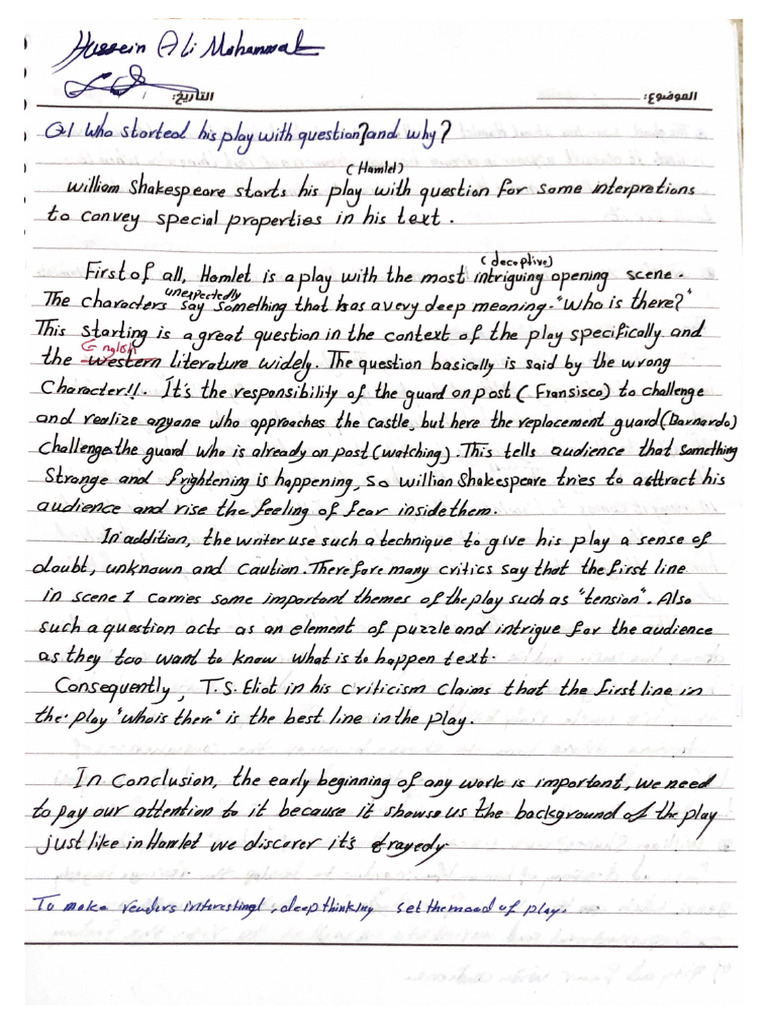 Hussein Ali Mohammad
الموضوع: التاريخ:
Q1 Who started his play with question? and why?
(Hamlet)
William Shakespeare starts his play with question for some interpretions
to convey special properties in his text.
(deceptive)
First of all, Hamlet is a play with the most intriguing opening scene.
unexpectedly
The characters say something that has a very deep meaning. "Who is there?"
This starting is a great question in the context of the play specifically and
English
the western literature widely. The question basically is said by the wrong
Character!!. It's the responsibility of the guard on post (Fransisco) to challenge
and realize anyone who approaches the castle, but here the replacement guard (Barnardo)
challenge the guard who is already on post (watching). This tells audience that something
Strange and frightening is happening, so willian Shakespeare tries to attract his
audience and rise the feeling of fear inside them.
In addition, the writer use such a technique to give his play a sense of
doubt, unknown and caution. Therefore many critics say that the first line
in scene 1 carries some important themes of the play such as "tension". Also
such a question acts as an element of puzzle and intrigue for the audience
as they too want to know what is to happen text.
Consequently, T.S. Eliot in his criticism claims that the first line in
the play "who is there" is the best line in the play.
In conclusion, the early beginning of any work is important, we need
to pay our attention to it because it shows us the background of the play
just like in Hamlet we discover it's tragedy
To make readers interesting, deep thinking set the mood of play.